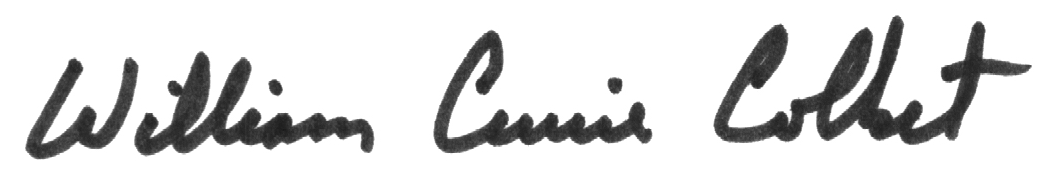 William Currie Colket